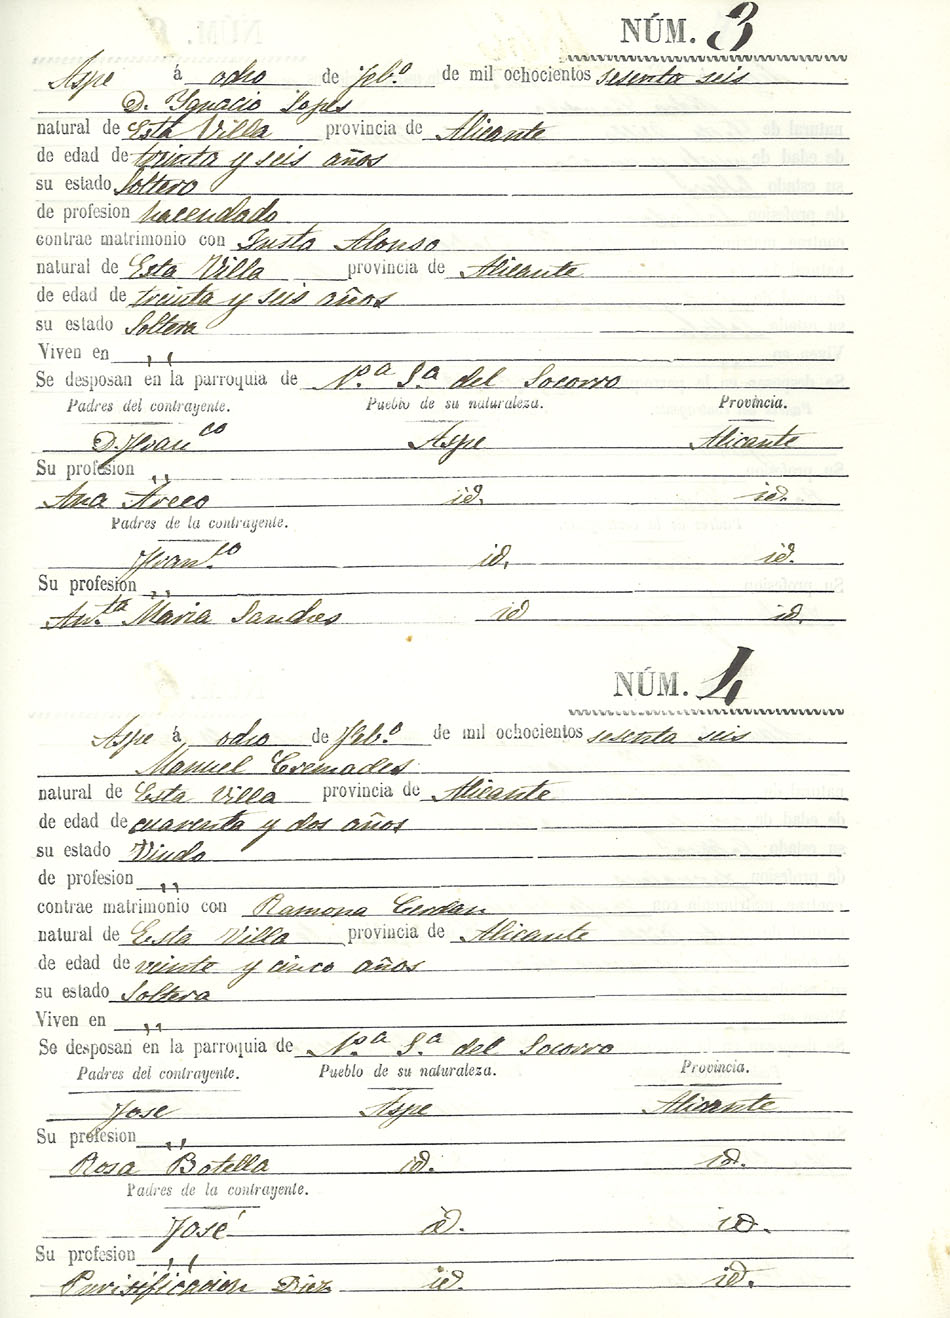 NÚM. 3
Aspe á ocho de Feb.º de mil ochocientos sesenta seis
D. Ygnacio Lopes
natural de Esta Villa provincia de Alicante
de edad de treinta y seis años
su estado Soltero
de profesion hacendado
contrae matrimonio con Justa Alonso
natural de Esta Villa provincia de Alicante
de edad de treinta y seis años
su estado Soltera
Viven en ,,
Se desposan en la parroquia de N.ª S.ª del Socorro
Padres del contrayente. Pueblo de su naturaleza. Provincia.
D. Fran.co Aspe Alicante
Su profesion ,,
Ana id. id.
Padres de la contrayente.
Fran.co id. id.
Su profesion ,,
Ant.ta Maria id id.
NÚM. 4
Aspe á ocho de Feb.º de mil ochocientos sesenta seis
Manuel Cremades
natural de Esta Villa provincia de Alicante
de edad de cuarenta y dos años
su estado Viudo
de profesion ,,
contrae matrimonio con Ramona Cerdan
natural de Esta Villa provincia de Alicante
de edad de veinte y cinco años
su estado Soltera
Viven en ,,
Se desposan en la parroquia de N.ª S.ª del Socorro
Padres del contrayente. Pueblo de su naturaleza. Provincia.
Jose Aspe Alicante
Su profesion ,,
Rosa Botella id. id.
Padres de la contrayente.
José id. id.
Su profesion ,,
Purisificacion Diez id. id.